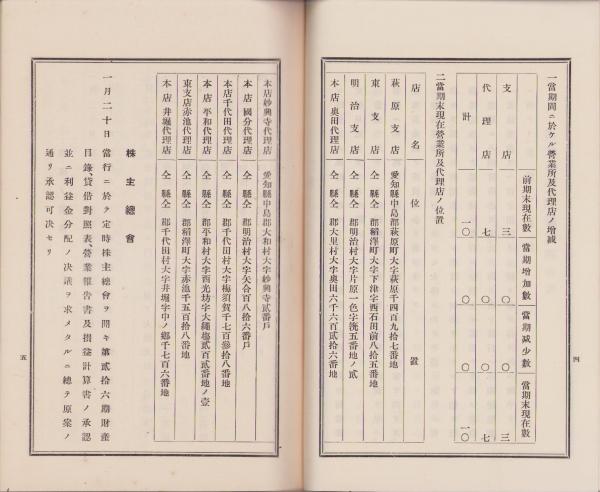 一當期間ニ於ケル營業所及代理店ノ增減
前期末現在數 當期增加數 當期減少數 當期末現在數
支店 三 〇 〇 三
代理店 七 〇 〇 七
計 一〇 〇 〇 一〇
二當期末現在營業所及代理店ノ位置
店名 位置
萩原支店 愛知縣中島郡萩原町大字萩原千四百九拾七番地
東支店 仝縣仝郡稻澤町大字下津字西石田前八拾五番地
明治支店 仝縣仝郡明治村大字片原一色字洗五番地ノ貳
本店奥田代理店 仝縣仝郡大里村大字奥田六千六百貳拾六番地
四
本店妙興寺代理店 愛知縣中島郡大和村大字妙興寺貳番戶
本店國分代理店 仝縣仝郡明治村大字矢合百八拾六番戶
本店千代田代理店 仝縣仝郡千代田村大字梅須賀千七百參拾八番地
本店平和代理店 仝縣仝郡平和村大字西光坊字大繩塲貳百貳番地ノ壹
東支店赤池代理店 仝縣仝郡稻澤町大字赤池千五百拾八番地
本店井堀代理店 仝縣仝郡千代田村大字井堀字中ノ鄕千七百六番地
株主總會
一月二十日 當行ニ於テ定時株主總會ヲ開キ第貳拾六期財產
目錄、貸借對照表、營業報告書及損益計算書ノ承認
並ニ利益金分配ノ決議ヲ求メタルニ總テ原案ノ
通リ承認可決セリ
五